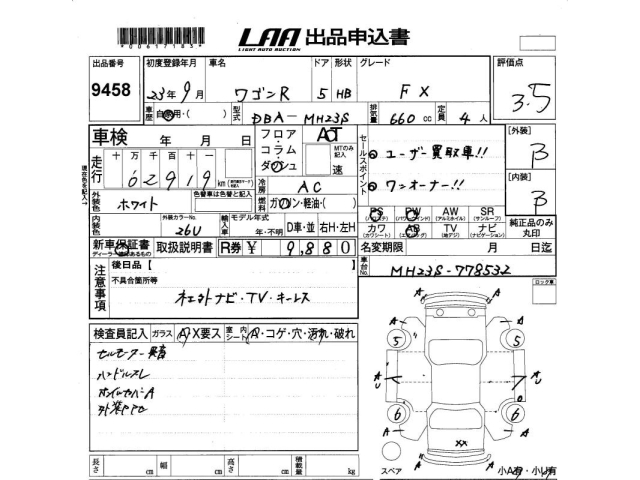 *00617185*
LAA 出品申込書
LIGHT AUTO AUCTION
出品番号 初度登録年月 車名 ドア 形状 グレード 評価点
9458 23年9月 ワゴンR 5 HB FX 3.5
車歴 自家用・( ) 型式 DBA-MH23S 排気量 660cc 定員 4人
車検 年 月 日
フロア コラム ダッシュ AT MTのみ記入 速
セールスポイント
ユーザー買取車!!
ワンオーナー!!
[外装] B
[内装] B
走行 十万千百十 62919 km
冷房 AC
燃料 ガソリン・軽油・( )
外装色 ホワイト 色替車は色替と記入
内装色 外装カラーNo. 26U 輸入車 モデル年式 年・不明 D車・並 右H・左H
PS PW AW SR
(パワステ) (パワーウィンド) (アルミホイル) (サンルーフ)
カワ AB TV ナビ
(カワシート) (エアバッグ) (地デジ) (ナビゲーション)
純正品のみ丸印
新車保証書 取扱説明書 R券 ¥ 9,880 名変期限 月 日迄
車台No. MH23S-778532
注意事項
後日品【
不具合箇所等
社外ナビ・TV・キーレス
ロック車
検査員記入 ガラス A・X要ス 室内シート A・コゲ・穴・汚れ・破れ
セルモーター異音
ハンドルスレ
ホイルカバーA
A A
5 5
A U A U
6 6
A A
XX
スペア 小A有・小U有
長さ cm 幅 cm 高さ cm 積載量 kg